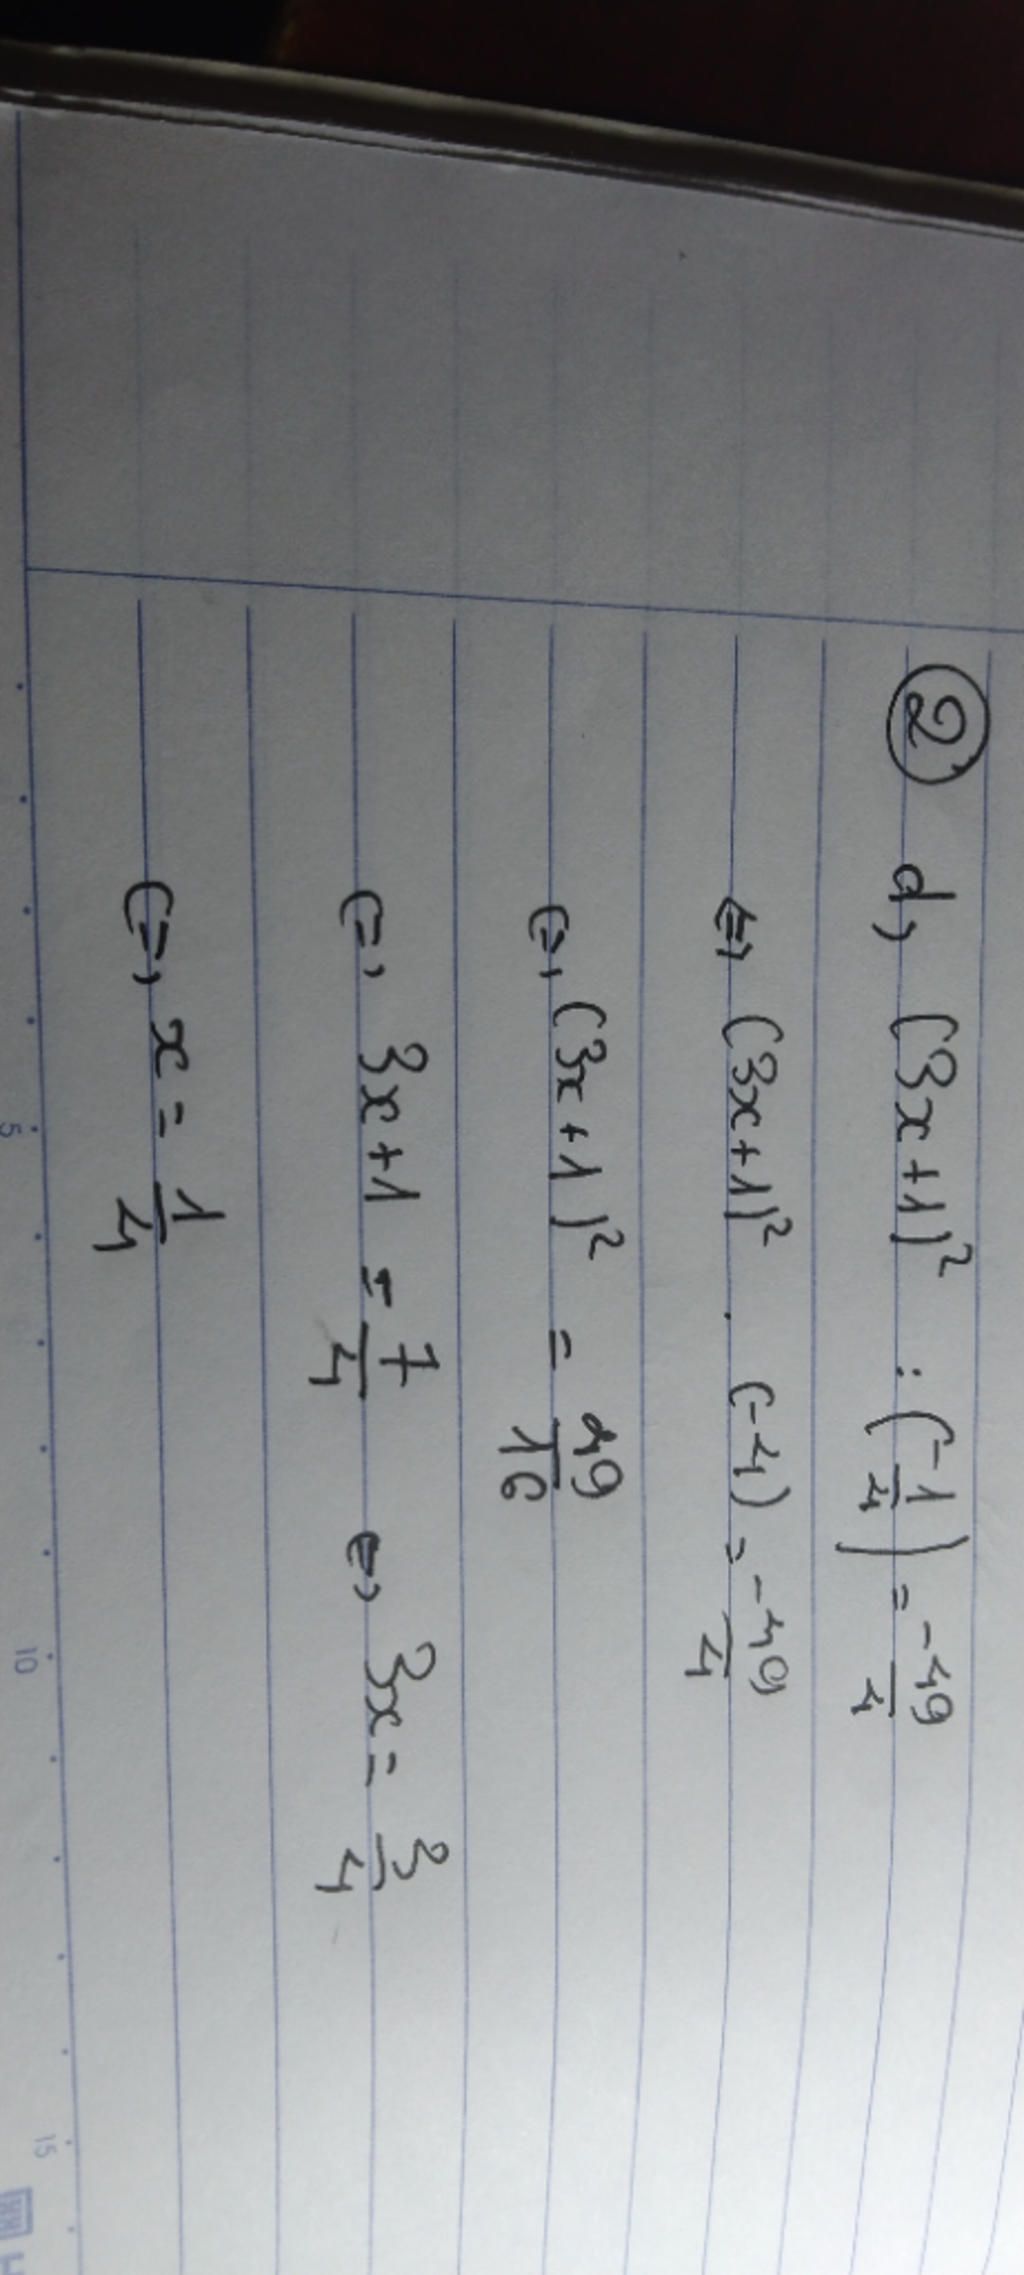 ② d, (3x+1)² : (-1/4) = -49/4
<=> (3x+1)² . (-4) = -49/4
<=> (3x+1)² = 49/16
<=> 3x+1 = 7/4 <=> 3x = 3/4
<=> x = 1/4
5 10 15